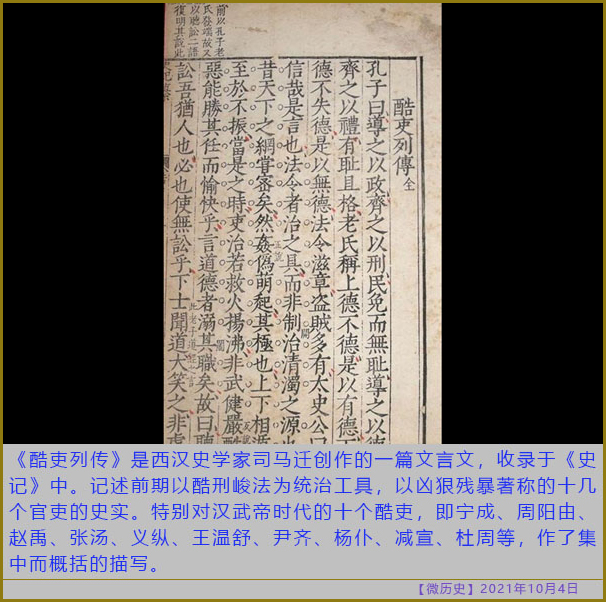 前以孔子老
氏發端故又
以聽訟二語
復明其說此
酷吏列傳 全
孔子曰導之以政齊之以刑民免而無恥導之以德
齊之以禮有恥且格老氏稱上德不德是以有德
德不失德是以無德法令滋章盜賊多有太史公曰
信哉是言也法令者治之具而非制治清濁之源也
昔天下之網嘗密矣然姦偽萌起其極也上下相遁
至於不振當是之時吏治若救火揚沸非武健嚴酷
惡能勝其任而愉快乎言道德者溺其職矣故曰聽
訟吾猶人也必也使無訟乎下士聞道大笑之非虛
《酷吏列传》是西汉史学家司马迁创作的一篇文言文，收录于《史
记》中。记述前期以酷刑峻法为统治工具，以凶狠残暴著称的十几
个官吏的史实。特别对汉武帝时代的十个酷吏，即宁成、周阳由、
赵禹、张汤、义纵、王温舒、尹齐、杨仆、减宣、杜周等，作了集
中而概括的描写。
【微历史】2021年10月4日